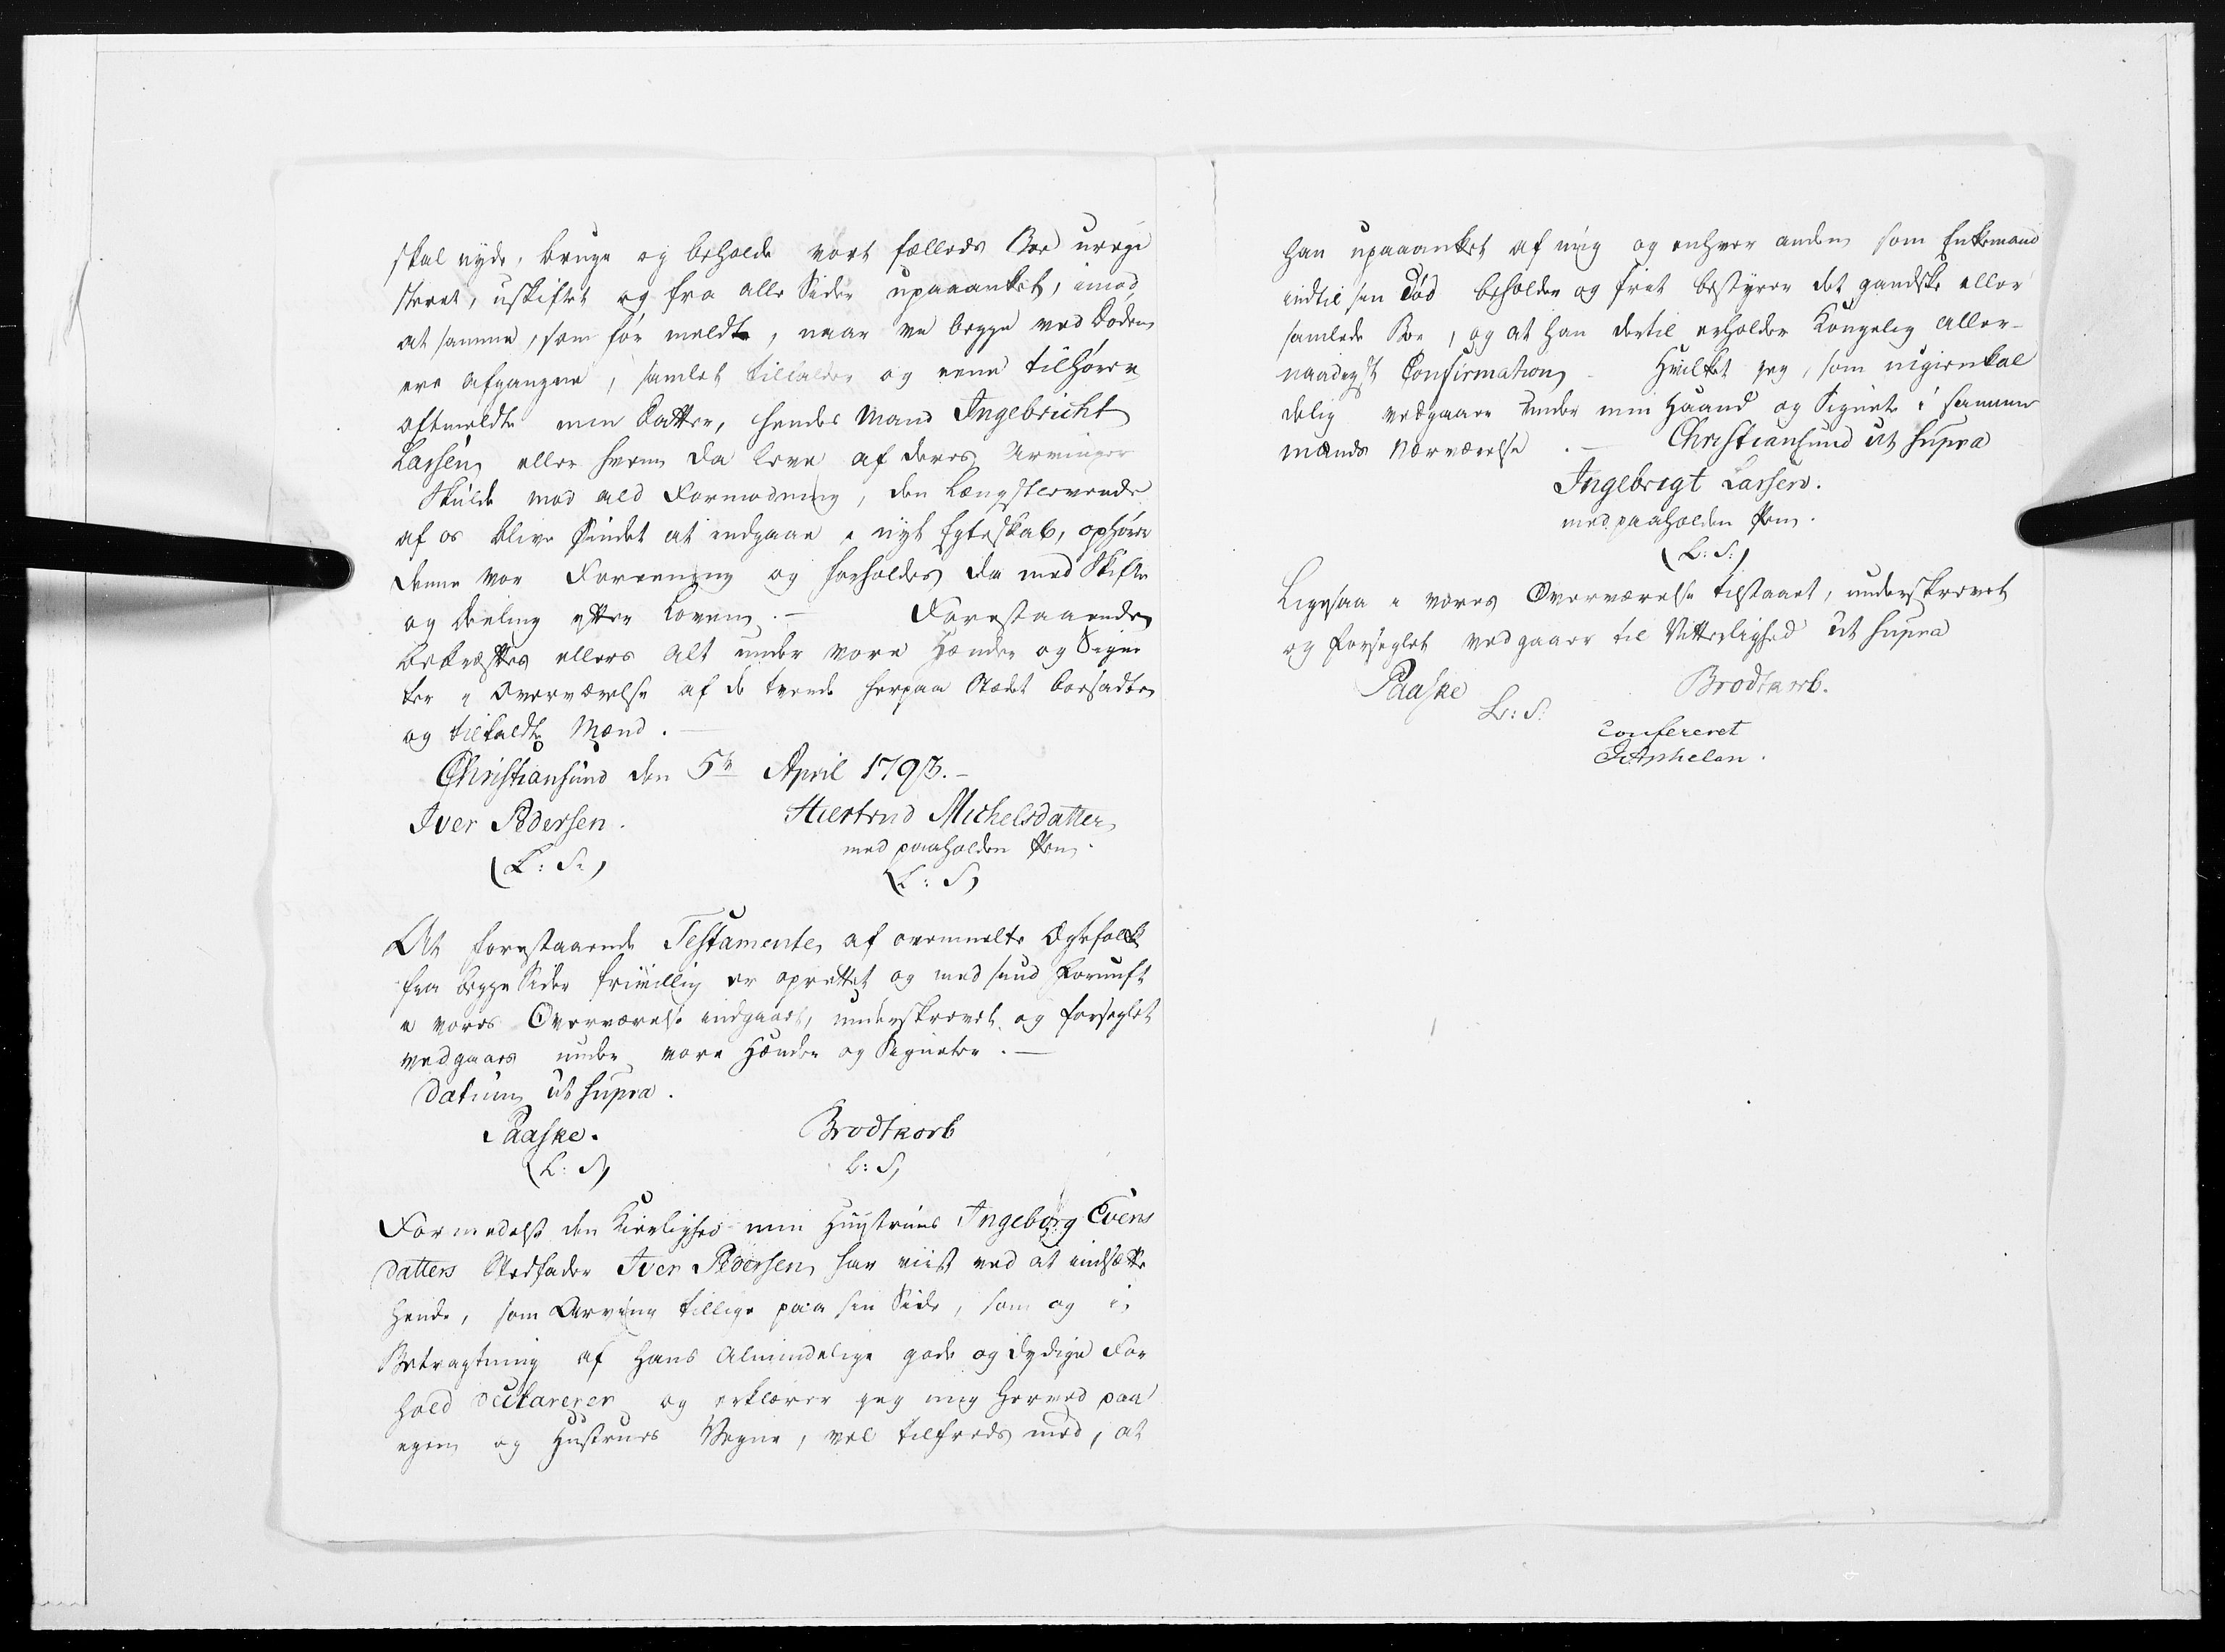 skal nyde, bruge og beholde vort fælleds Boe uregi
streret, uskiftet og fra alle Sider upaaanket, imod
at samme, som før meldt, naar vi begge ved Døden
ere afgangne, samlet tilfalder og eene tilhører
oftmeldte min Datter, hendes Mand Ingebricht
Lassen eller hvem da leve af deres Arvinger
Skulde mod ald Formodning, den Længstlevende
af os blive sindet at indgaae i nyt Egteskab, ophører
denne vor Foreening og forholdes da med Skifte
og Deeling efter Loven. – Forestaaende
bekræftes ellers alt under vore Hænder og Signe
ter i Overværelse af de tvende herpaa Stædet boesadte
og tilkaldte Mænd. –
Christiansund den 5te April 1793. –
Iver Pedersen. Hiertrud Michelsdatter
med paaholden Pen.
(L: S:) (L: S)
At forestaaende Testamente, af ovenmelte Ægtefolk
fra begge Sider friivillig er oprettet og med sund Fornuft
i vores Overværelse indgaaet, underskrevet og forseglet
vedgaaes under vore Hænder og Signeter. –
Datum ut supra.
Paaske. Brodtkorb
(L: S) L: S)
Formedelst den Kierlighed min Hustrues Ingeborg Evens
datters Stedfader Iver Pedersen har viist ved at indsætte
hende, som Arving tillige paa sin Side, som og i
Betragtning af hans Almindelige gode og dydige For
hold declarerer og erklærer jeg mig herved paa
egen og Hustrues Vegne, vel tilfreds med, at
han upaaanket af mig og enhver anden som Enkemand
indtil sin Død beholder og friit bestyrer det gandske eller
samlede Boe, og at han dertil erholder Kongelig Aller-
naadigst Confirmation – Hvilket jeg, som uigienkal
delig vedgaaer under min Haand og Signete i samme
mænds Nærværelse. – Christiansund ut supra
Ingebrigt Larsen.
med paaholden Pen.
(L: S:)
Ligesaa i vores Overværelse tilstaaet, underskrevet
og forseglet vedgaaer til Vitterlighed ut supra
Paaske Brodtkorb.
L: S.
Confereret